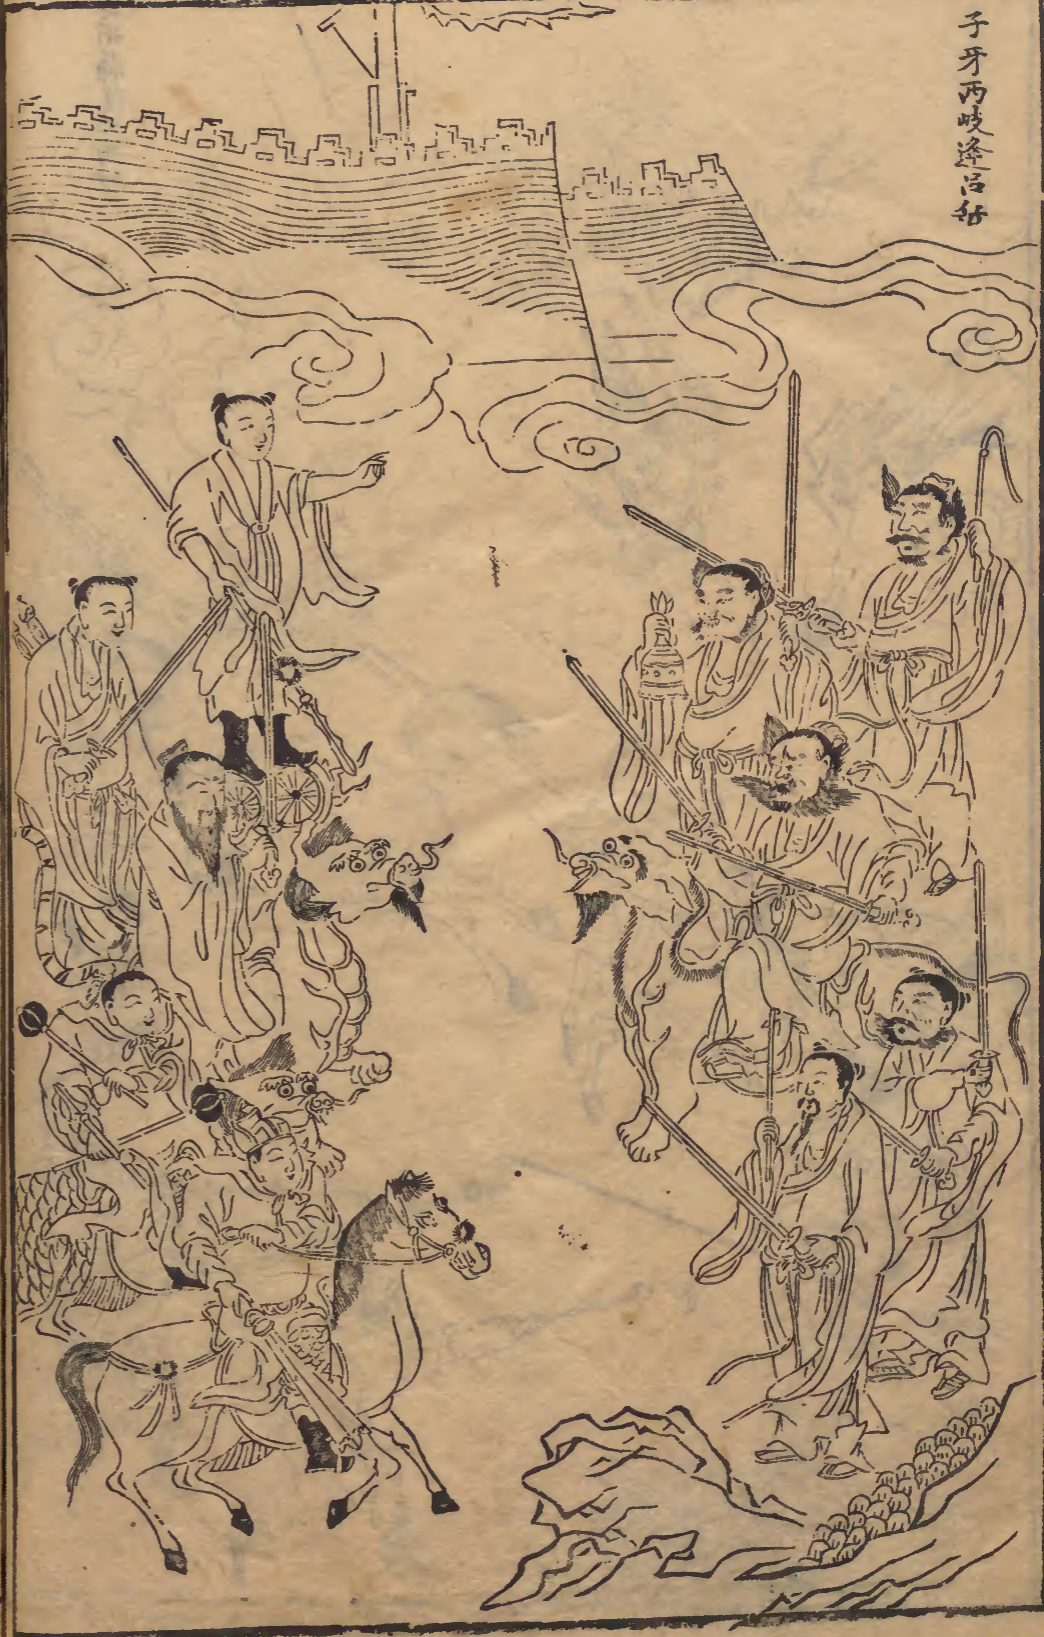 子牙西岐逢呂岳